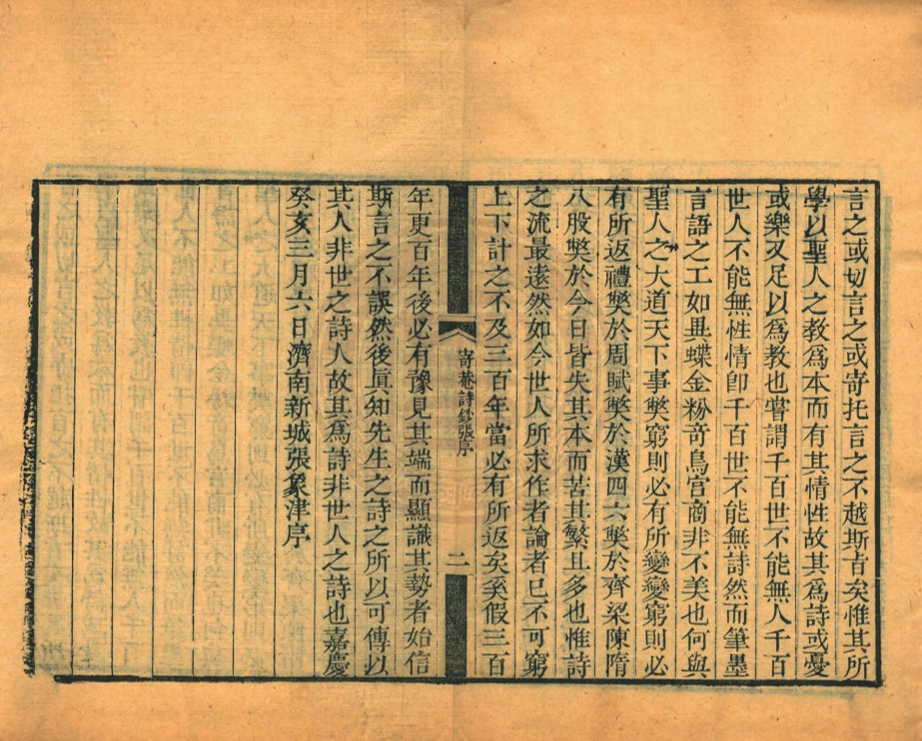 言之或切言之或寄托言之不越斯旨矣惟其所
學以聖人之教爲本而有其情性故其爲詩或憂
或樂又足以爲教也嘗謂千百世不能無人千百
世人不能無性情卽千百世不能無詩然而筆墨
言語之工如異蝶金粉奇鳥宮商非不美也何與
聖人之大道天下事獘窮則必有所變變窮則必
有所返禮獘於周賦獘於漢四六獘於齊梁陳隋
八股獘於今日皆失其本而苦其繁且多也惟詩
之流最遠然如今世人所求作者論者已不可窮
上下計之不及三百年當必有所返矣奚假三百
寄菴詩鈔張序
二
年更百年後必有豫見其端而顯識其勢者始信
斯言之不誤然後眞知先生之詩之所以可傳以
其人非世之詩人故其爲詩非世人之詩也嘉慶
癸亥三月六日濟南新城張象津序